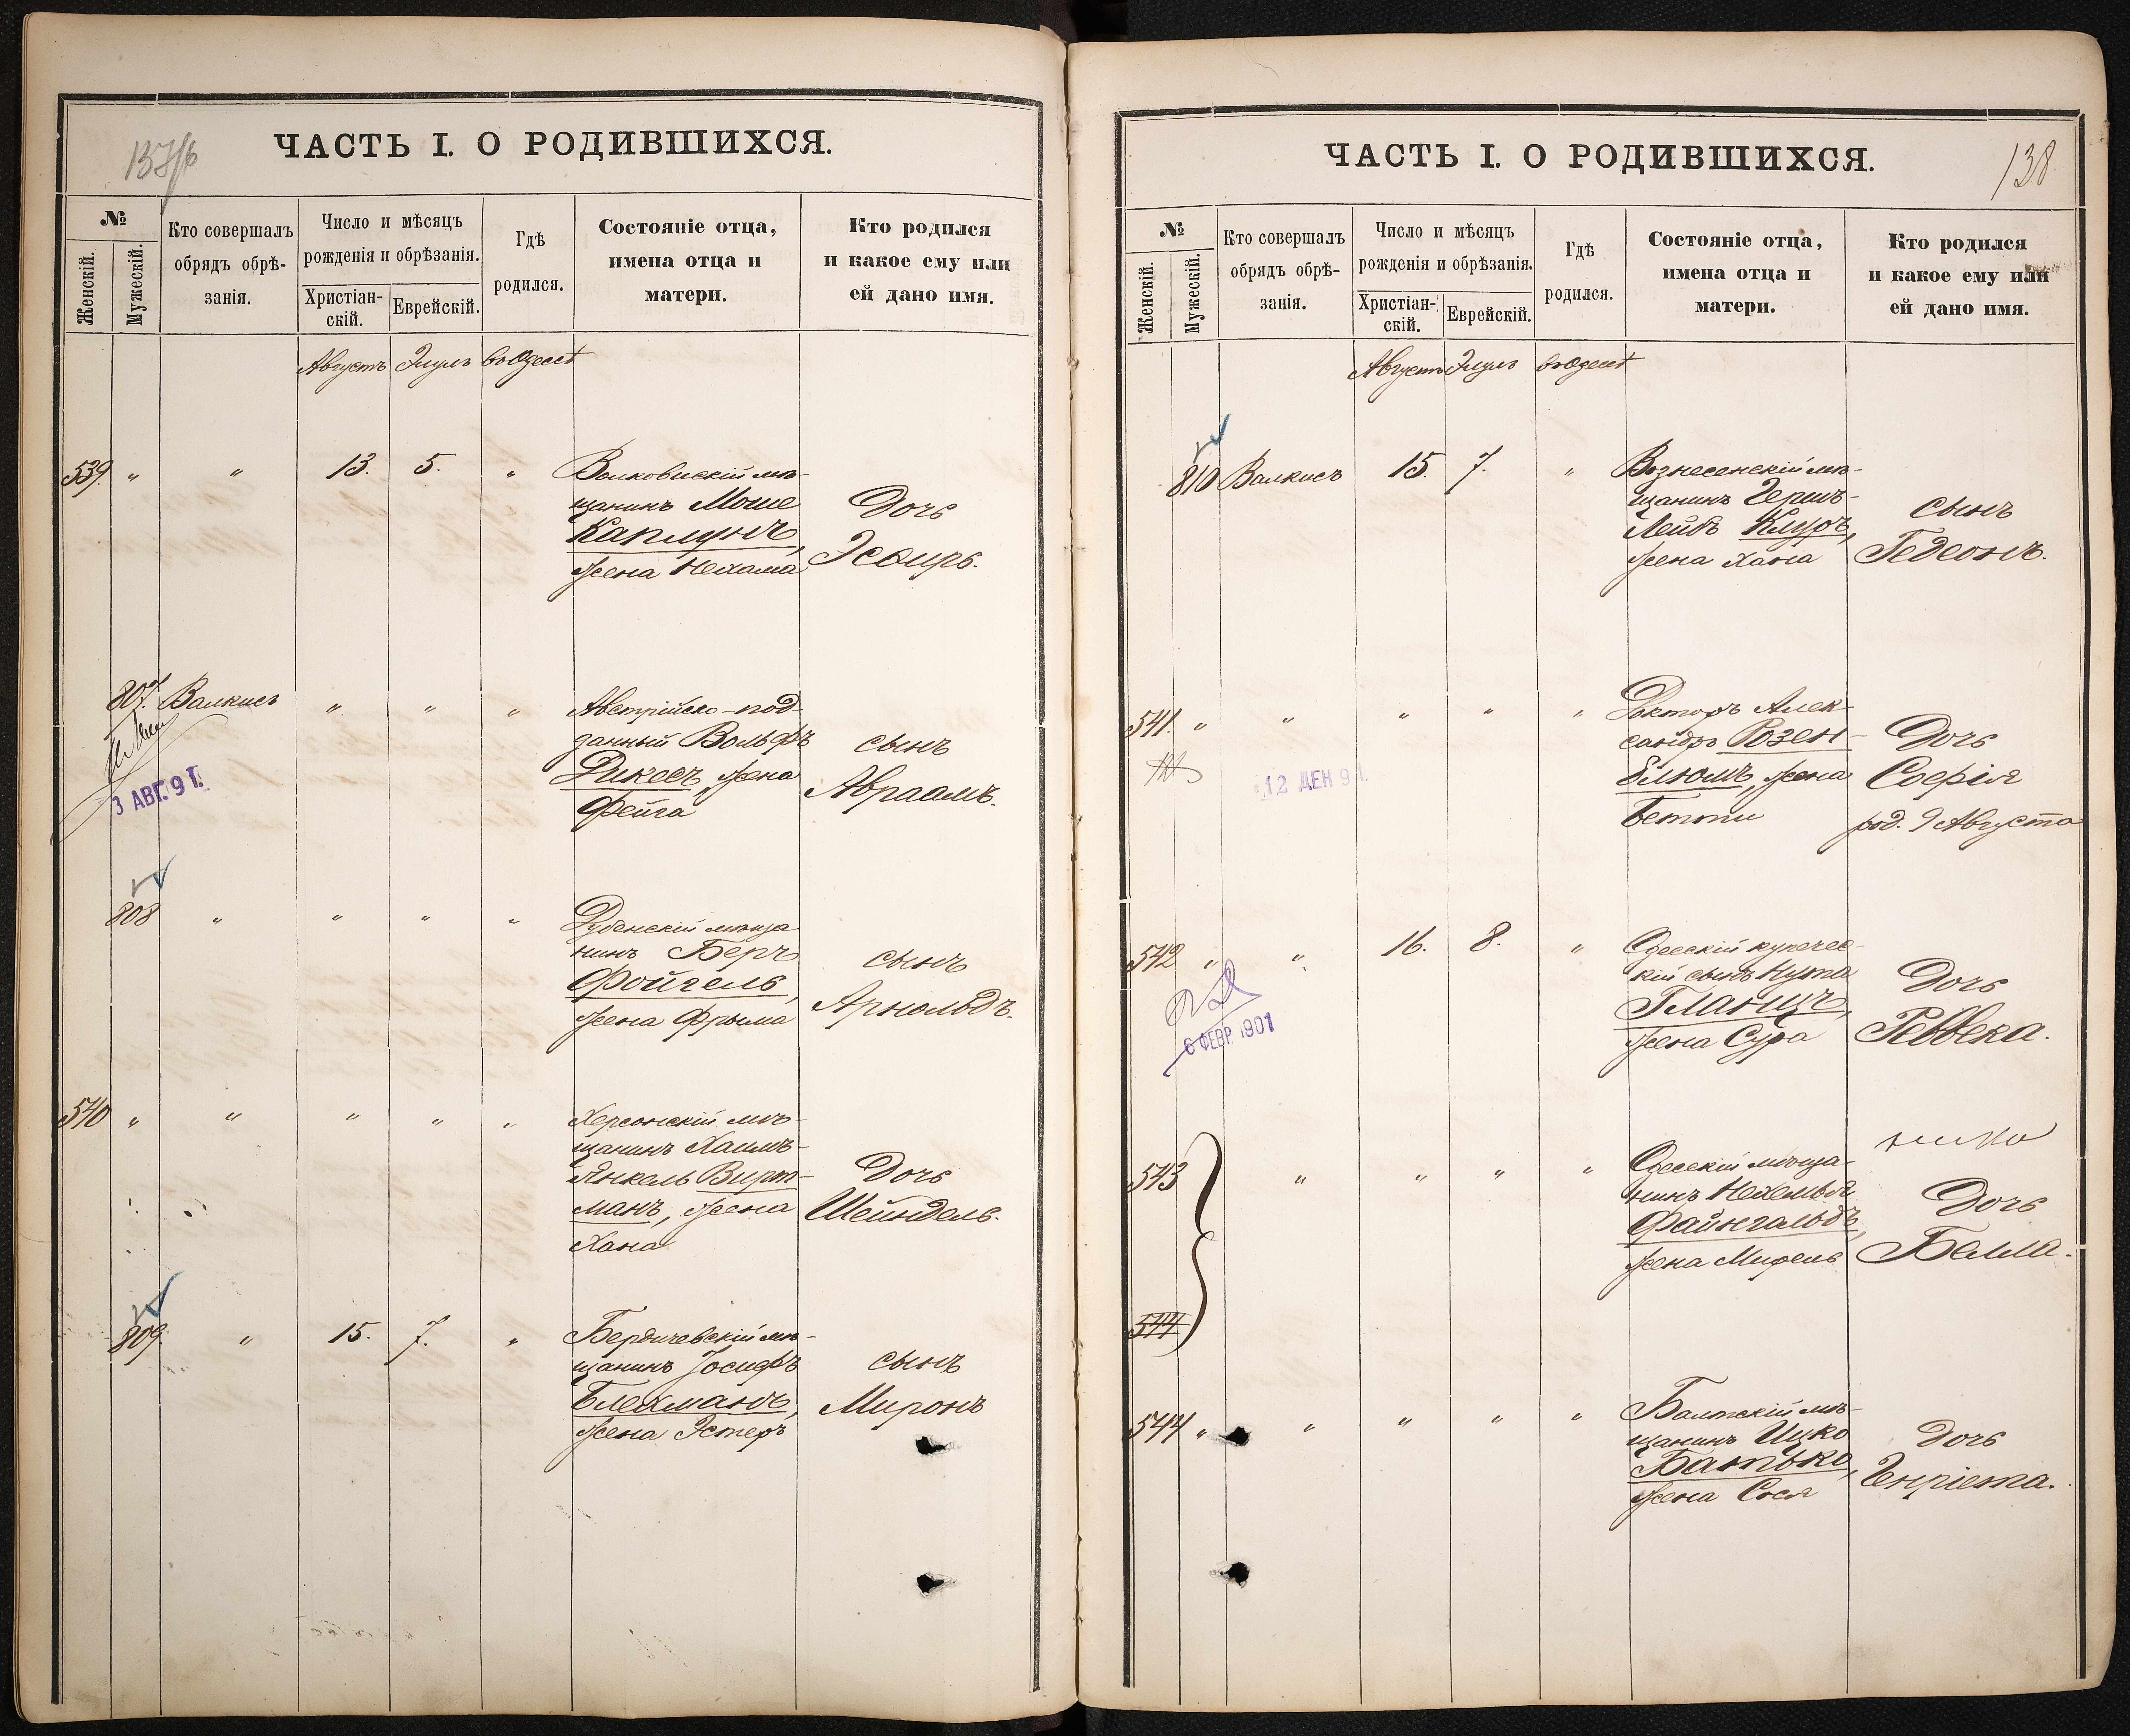 137/б
ЧАСТЬ I. О РОДИВШИХСЯ.
№
Женскій.
Мужескій.
Кто совершалъ
обрядъ обрѣ-
занія.
Число и мѣсяцъ
рожденія и обрѣзанія.
Христіан-
скій.
Еврейскій.
Гдѣ
родился.
Состояніе отца,
имена отца и
матери.
Кто родился
и какое ему или
ей дано имя.
Августъ Элулъ въ Одессѣ
539. " " 13. 5. "
Волковискій мѣ-
щанинъ Моше
Каплунъ,
жена Нехама
Дочь
Эсѳирь.
807. Валкисъ " " "
Австрійско-под-
данный Вольфъ
Дикесъ, жена
Фейга
сынъ
Авраамъ.
3 АВГ. 91.
808 " " " "
Дубенскій мѣща-
нинъ Беръ
Фойгель,
жена Фрыма
сынъ
Арнольдъ.
540 " " " " "
Херсонскій мѣ-
щанинъ Хаимъ-
Янкель Вирт-
манъ, жена
Хана
Дочь
Шейндель.
809. " 15. 7. "
Бердичевскій мѣ-
щанинъ Іосифъ
Блехманъ,
жена Эстеръ
сынъ
Миронъ
ЧАСТЬ I. О РОДИВШИХСЯ.
138
№
Женскій.
Мужескій.
Кто совершалъ
обрядъ обрѣ-
занія.
Число и мѣсяцъ
рожденія и обрѣзанія.
Христіан-
скій.
Еврейскій.
Гдѣ
родился.
Состояніе отца,
имена отца и
матери.
Кто родился
и какое ему или
ей дано имя.
Августъ Элулъ въ Одессѣ
810 Валкисъ 15. 7. "
Вознесенскій мѣ-
щанинъ Гершъ-
Лейбъ Клуръ,
жена Хана
сынъ
Гедеонъ.
541. " " " " "
Докторъ Алек-
сандръ Розен-
блюмъ, жена
Бетти
Дочь
Софія
род. 9 Августа
12 ДЕН 91.
542 " " 16. 8. "
Одесскій купечес-
кій сынъ Нута
Гланцъ,
жена Сура
Дочь
Ревека.
6 ФЕВР. 1901
543 " " " "
Одесскій мѣща-
нинъ Нехемья
Файнгольдъ,
жена Мирель
Дочь
Белла.
544
544 " " " " "
Балтскій мѣ-
щанинъ Ицко
Батько,
жена Сося
Дочь
Генріета.